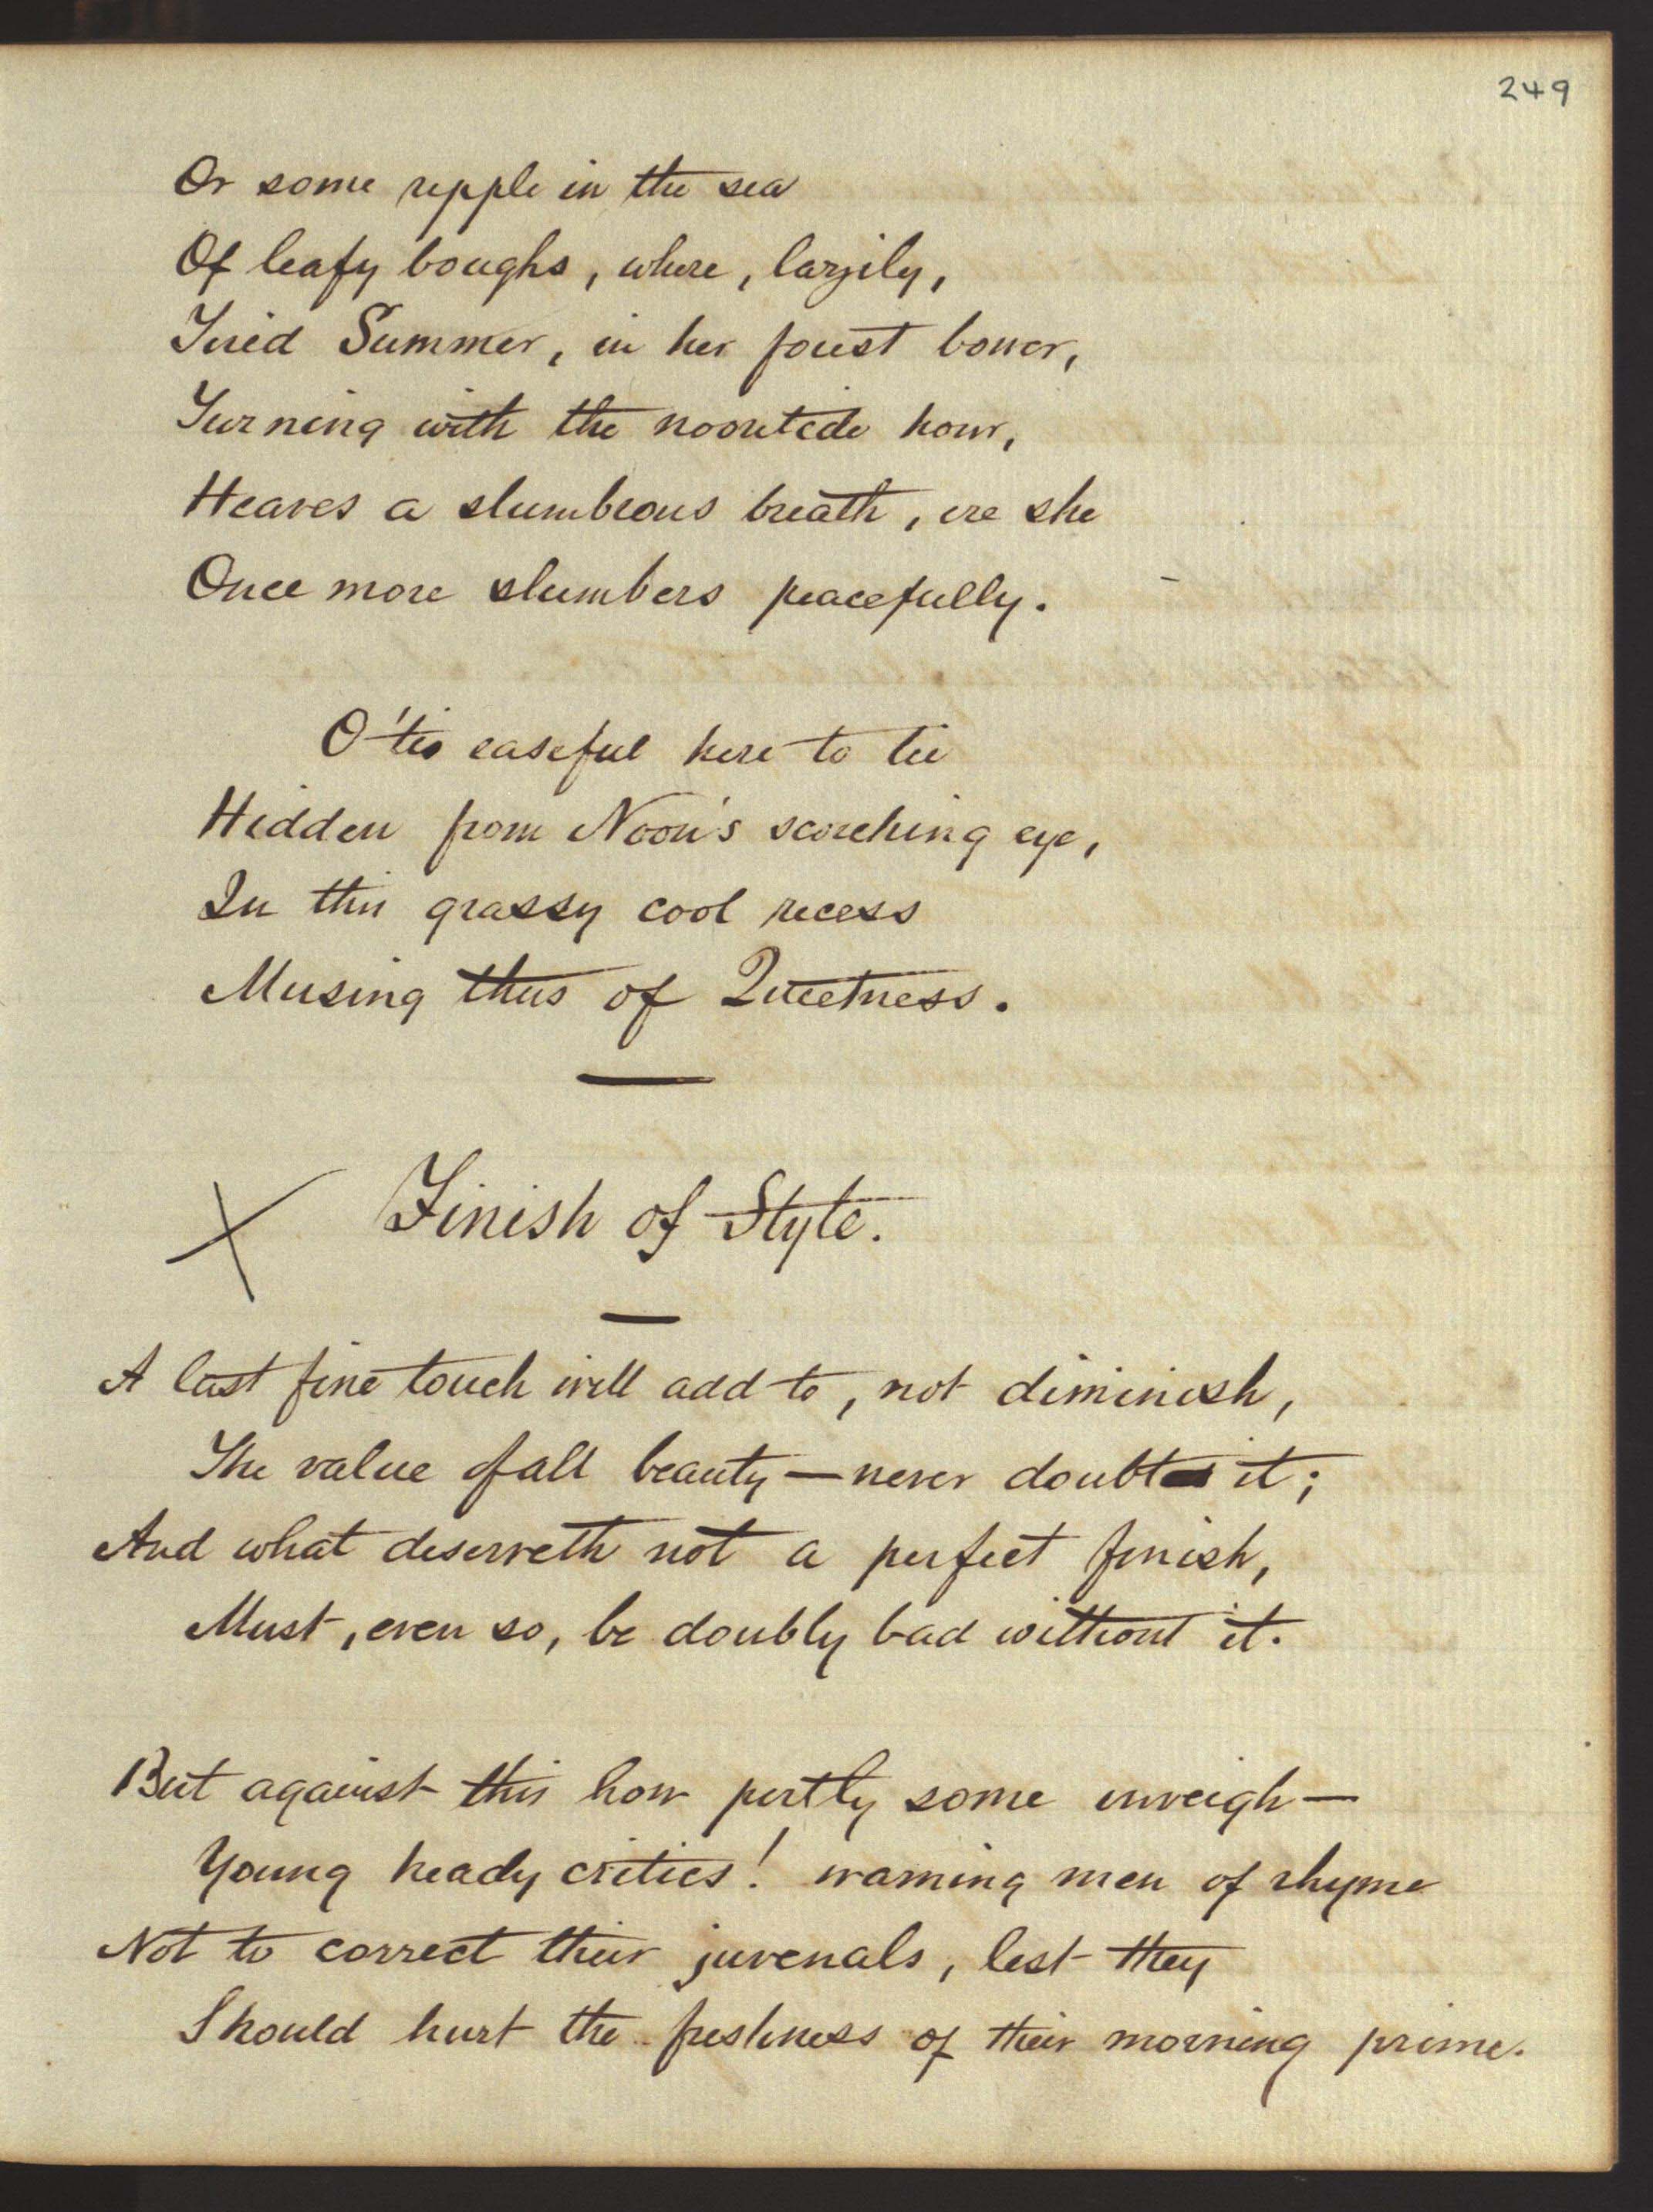 249
Or some ripple in the sea
Of leafy boughs, where, lazily,
Tired Summer, in her forest bower,
Turning with the noontide hour,
Heaves a slumbrous breath, ere she
Once more slumbers peacefully.
O 'tis easeful here to lie
Hidden from Noon's scorching eye,
In this grassy cool recess
Musing thus of Quietness.
Finish of Style.
A last fine touch will add to, not diminish,
The value of all beauty — never doubt it;
And what deserveth not a perfect finish,
Must, even so, be doubly bad without it.
But against this how pertly some inveigh —
Young heady critics! warning men of rhyme
Not to correct their juvenals, lest they
Should hurt the freshness of their morning prime.